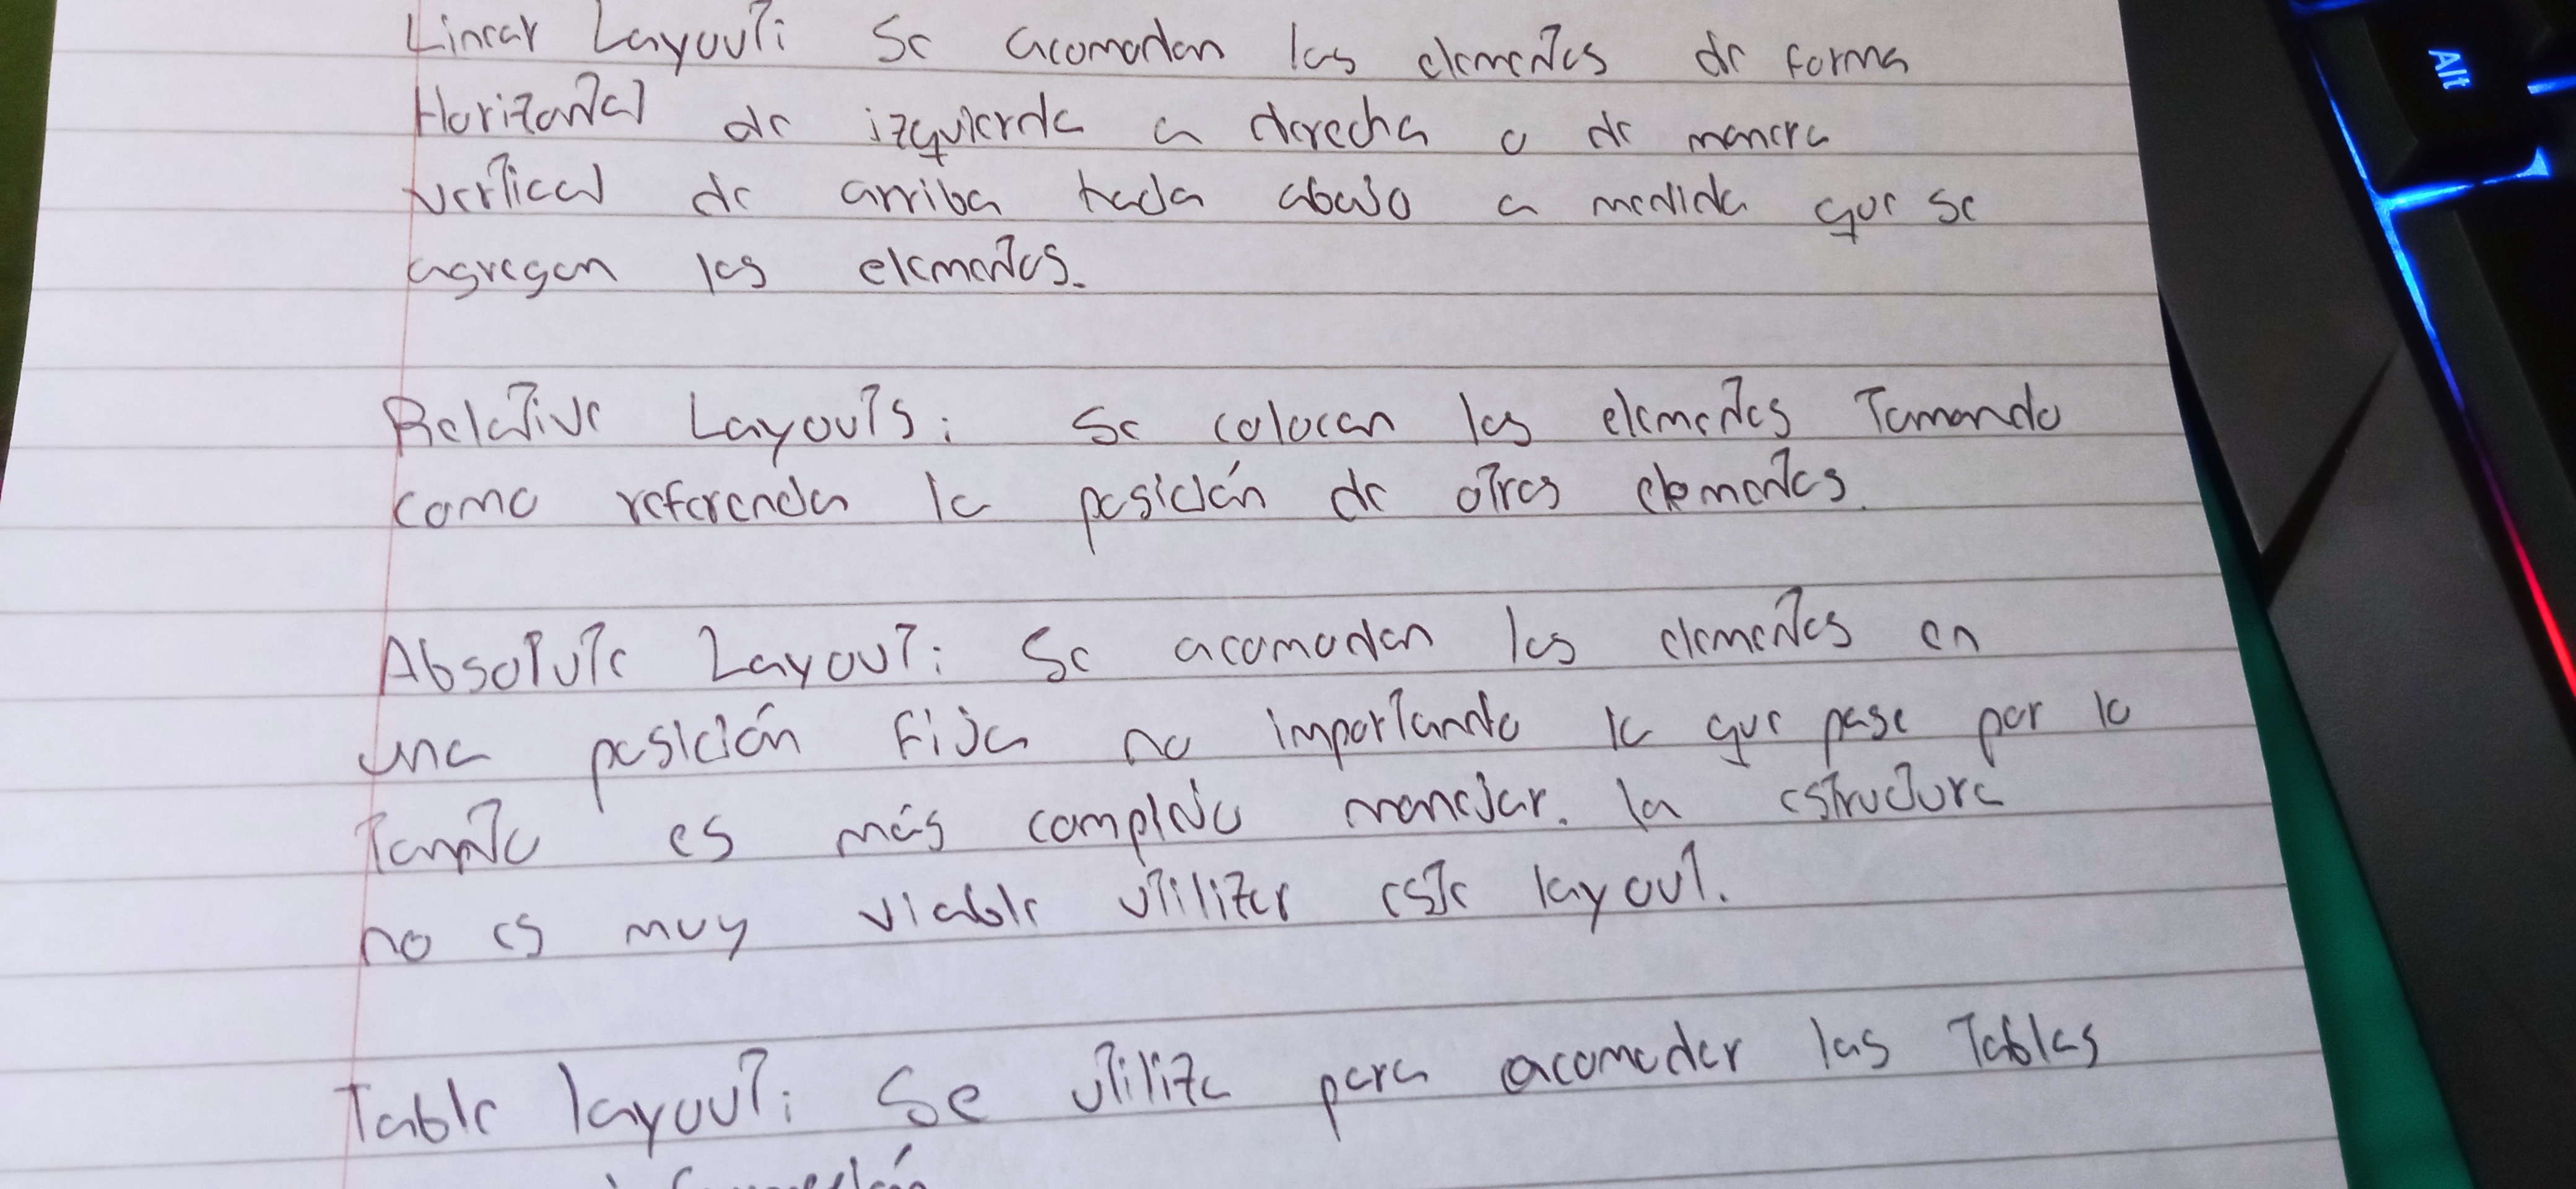 Linear Layout: Se acomodan los elementos de forma
Horizontal de izquierda a derecha o de manera
vertical de arriba hacia abajo a medida que se
agregan los elementos.
Relative Layouts: Se colocan los elementos Tomando
como referencia la posición de otros elementos.
Absolute Layout: Se acomodan los elementos en
una posición fija no importando lo que pase por lo
Tanto es más complejo manejar. la estructura
no es muy viable utilizar este layout.
Table layout: Se utiliza para acomodar las Tablas
información
Alt